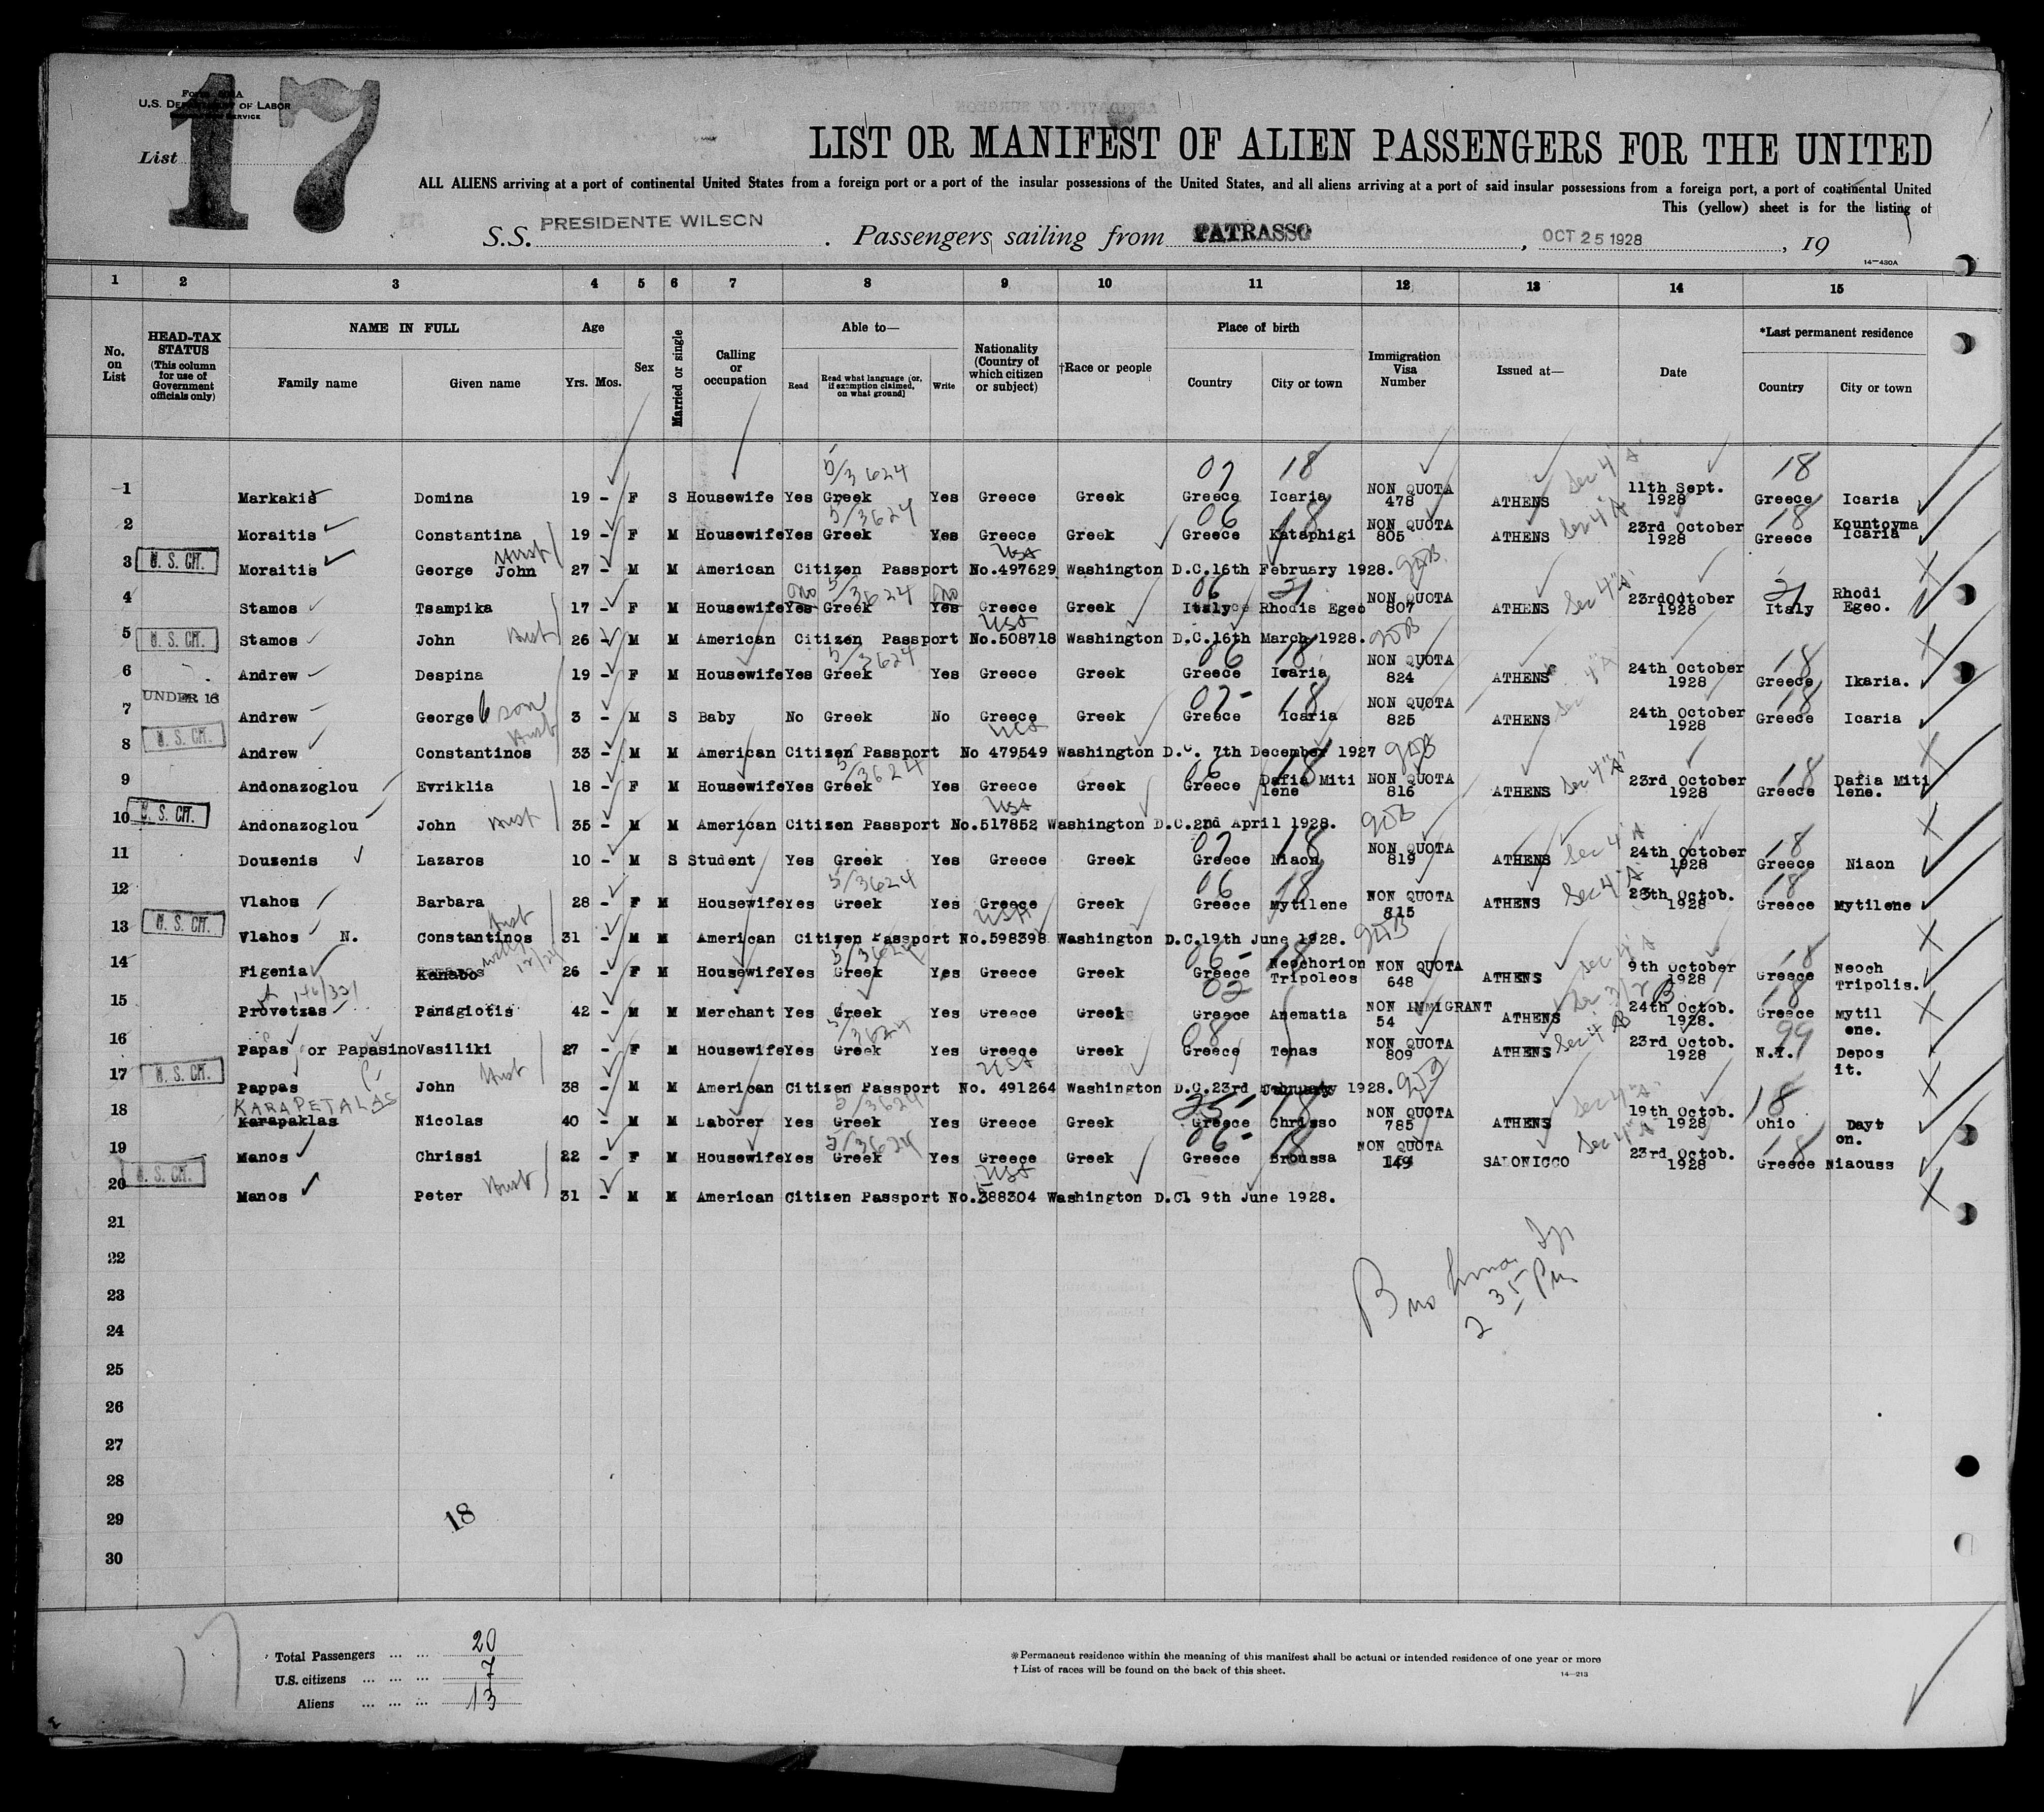 17
Form 500A
U.S. DEPARTMENT OF LABOR
SERVICE
List
LIST OR MANIFEST OF ALIEN PASSENGERS FOR THE UNITED
ALL ALIENS arriving at a port of continental United States from a foreign port or a port of the insular possessions of the United States, and all aliens arriving at a port of said insular possessions from a foreign port, a port of continental United
This (yellow) sheet is for the listing of
S.S. PRESIDENTE WILSON . Passengers sailing from PATRASSO , OCT 25 1928 , 19
14—430A
1 2 3 4 5 6 7 8 9 10 11 12 13 14 15
No. on List
HEAD-TAX STATUS (This column for use of Government officials only)
NAME IN FULL
Family name Given name
Age
Yrs. Mos.
Sex
Married or single
Calling or occupation
Able to—
Read Read what language [or, if exemption claimed, on what ground] Write
Nationality (Country of which citizen or subject)
†Race or people
Place of birth
Country City or town
Immigration Visa Number
Issued at—
Date
*Last permanent residence
Country City or town
5/3624 07 18 18
1 Markakis Domina 19 - F S Housewife Yes Greek Yes Greece Greek Greece Icaria NON QUOTA 478 ATHENS Sec 4 "A" 11th Sept. 1928 Greece Icaria
5/3624 06 18 18
2 Moraitis Constantina 19 - F M Housewife Yes Greek Yes Greece Greek Greece Kataphigi NON QUOTA 805 ATHENS Sec 4 "A" 23rd October 1928 Greece Kountoyma Icaria
3 U.S. CIT. Moraitis George John Hust 27 - M M American Citizen Passport USA No.497629 Washington D.C.16th February 1928.
5/3624 06 21 21
4 Stamos Tsampika 17 - F M Housewife Yes no Greek Yes no Greece Greek Italy Rhodis Egeo NON QUOTA 807 ATHENS Sec 4 "A" 23rdOctober 1928 Italy Rhodi Egeo.
5 U.S. CIT. Stamos John Hust 26 - M M American Citizen Passport USA No.508718 Washington D.C.16th March 1928.
5/3624 06 18 18
6 Andrew Despina 19 - F M Housewife Yes Greek Yes Greece Greek Greece Icaria NON QUOTA 824 ATHENS 4 "A" 24th October 1928 Greece Ikaria.
UNDER 16
07- 18 18
7 Andrew George son 3 - M S Baby No Greek No Greece Greek Greece Icaria NON QUOTA 825 ATHENS 24th October 1928 Greece Icaria
8 U.S. CIT. Andrew Constantinos Hust 33 - M M American Citizen Passport USA No 479549 Washington D.C. 7th December 1927
5/3624 06 18 18
9 Andonazoglou Evriklia 18 - F M Housewife Yes Greek Yes Greece Greek Greece Dafia Miti lene NON QUOTA 816 ATHENS Sec 4 "A" 23rd October 1928 Greece Dafia Miti lene.
10 U.S. CIT. Andonazoglou John Hust 35 - M M American Citizen Passport USA No.517852 Washington D.C.2nd April 1928.
07 18 18
11 Douzenis Lazaros 10 - M S Student Yes Greek Yes Greece Greek Greece Niaon NON QUOTA 819 ATHENS Sec 4 "A" 24th October 1928 Greece Niaon
5/3624 06 18 18
12 Vlahos Barbara 28 - F M Housewife Yes Greek Yes Greece Greek Greece Mytilene NON QUOTA 815 ATHENS Sec 4 "A" 23th Octob. 1928 Greece Mytilene
13 U.S. CIT. Vlahos N. Constantinos Hust 31 - M M American Citizen Passport USA No.598398 Washington D.C.19th June 1928.
5/3624 06- 18 18
14 Figenia Kanabos 26 - F M Housewife Yes Greek Yes Greece Greek Greece Neochorion Tripoleos NON QUOTA 648 ATHENS Sec 4 "A" 9th October 1928 Greece Neoch Tripolis.
02 18
15 Provetzas Panagiotis 42 - M M Merchant Yes Greek Yes Greece Greek Greece Anematia NON IMMIGRANT 54 ATHENS Sec 3/2 B 24th Octob. 1928. Greece Mytil ene.
5/3624 08 99
16 Papas or Papasino Vasiliki 27 - F M Housewife Yes Greek Yes Greece Greek Greece Tenas NON QUOTA 809 ATHENS Sec 4 B 23rd Octob. 1928 N.Y. Depos it.
17 U.S. CIT. Pappas John Hust 38 - M M American Citizen Passport USA No. 491264 Washington D.C.23rd January 1928.
KARAPETALAS 5/3624 25- 18 18
18 Karapaklas Nicolas 40 - M M Laborer Yes Greek Yes Greece Greek Greece Chrisso NON QUOTA 785 ATHENS Sec 4 "A" 19th Octob. 1928 Ohio Dayt on.
5/3624 06- 18 18
19 Manos Chrissi 22 - F M Housewife Yes Greek Yes Greece Greek Greece Broussa NON QUOTA 149 SALONICCO Sec 4 "A" 23rd Octob. 1928 Greece Niaouss
20 U.S. CIT. Manos Peter Hust 31 - M M American Citizen Passport USA No.388304 Washington D.C. 9th June 1928.
21
22
23
24
25
26
27
28
29
30
2 35 Pm
18
17
Total Passengers ... ... 20
U.S. citizens ... ... ... 7
Aliens ... ... ... 13
*Permanent residence within the meaning of this manifest shall be actual or intended residence of one year or more
†List of races will be found on the back of this sheet.
14—213